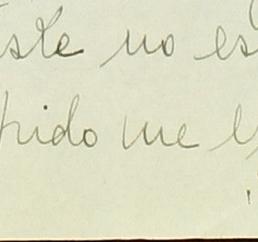 este no es
pido me e